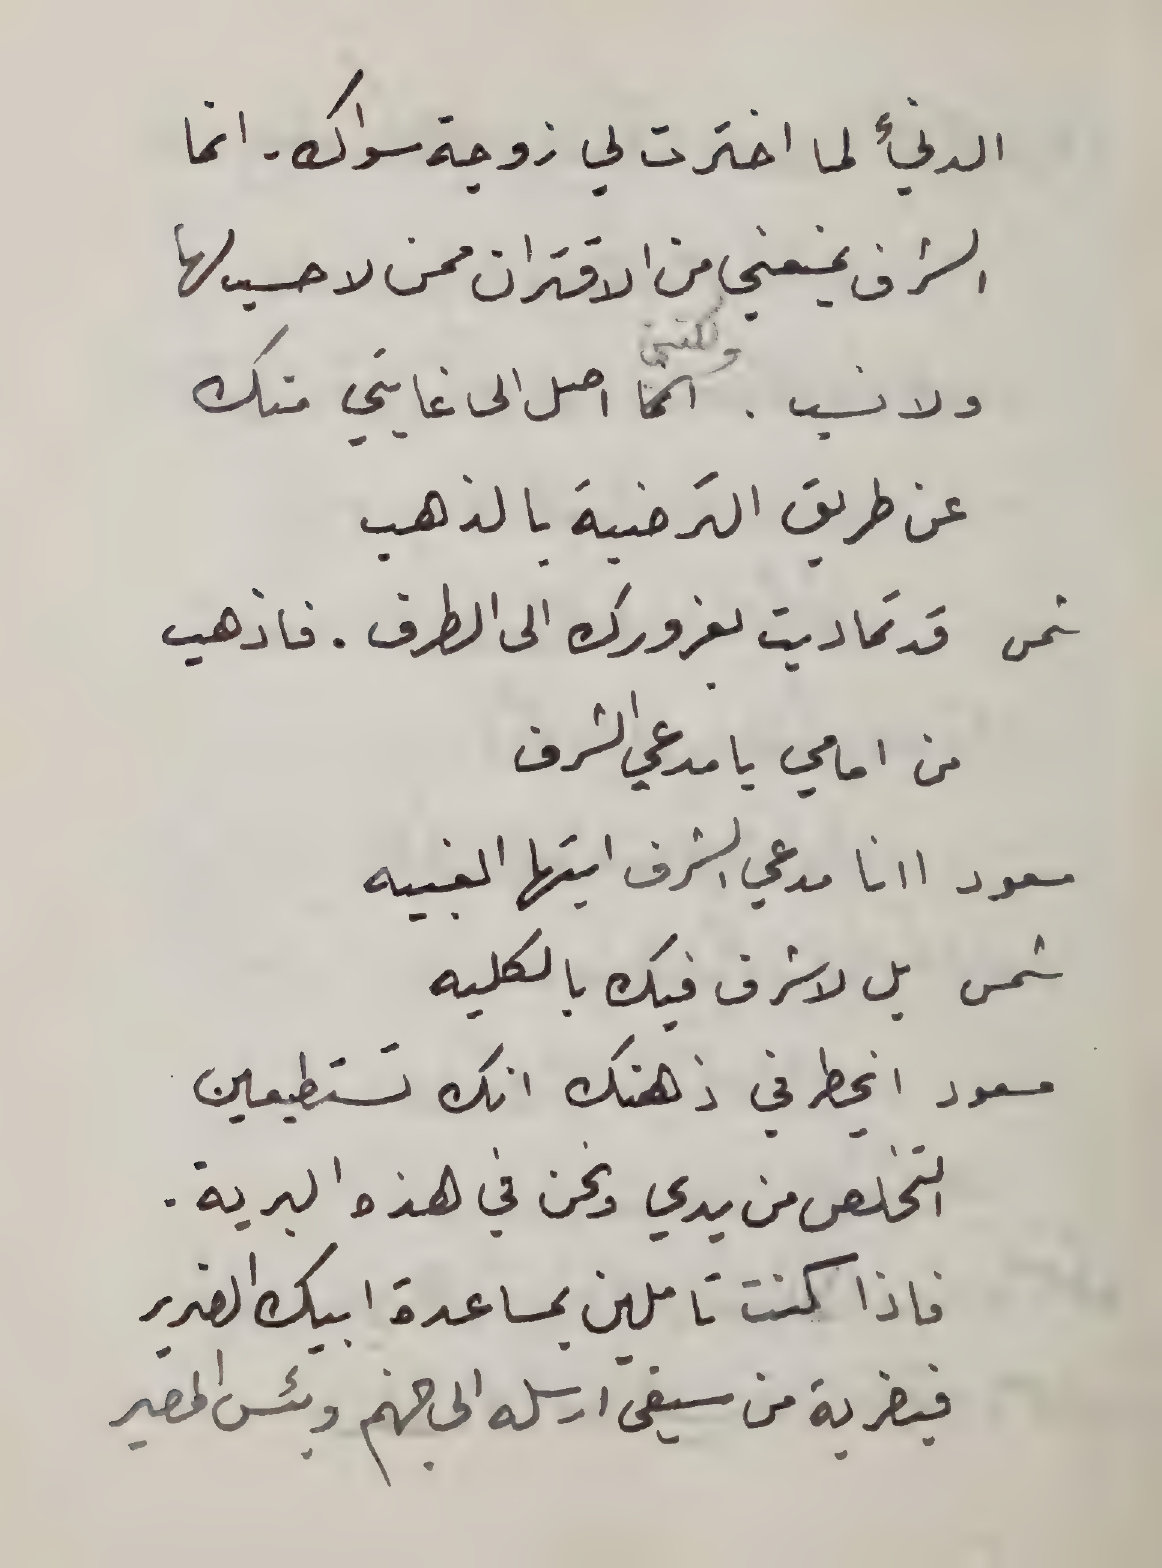 الدنيء لما اخترت لي زوجة سواك. انما
الشرف يمنعني من الاقتران ممن لا حسب لها
ولكنني
ولا نسب . انما اصل الى غايتي منك
عن طريق الترضية بالذهب
شمس قد تماديت بغرورك الى الطرف . فاذهب
من امامي يا مدعي الشرف
مسعود اانا مدعي الشرف ايتها الغبيه
شمس بل لا شرف فيك بالكليه
مسعود ايخطر في ذهنك انك تستطيعين
التخلص من يدي ونحن في هذه البرية .
فاذا كنت تاملين بمساعدة ابيك الضرير
فبضربة من سيفي ارسله الى جهنم وبئس المصير